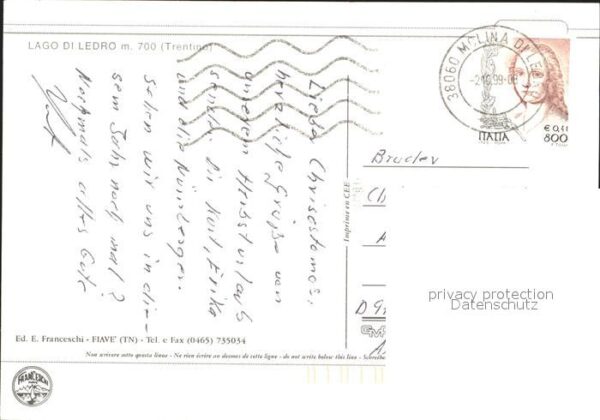 LAGO DI LEDRO m. 700 (Trentino)
38060 MOLINA DI LE
-2.10.99-
ITALIA
€ 0,41
800
Lieber Chrisostomos,
herzliche Grüße von
unserem Herbsturlaub
senden Dir Kurt, Erika
und die Nürnberger.
Sehen wir uns in die-
sem Jahr noch mal?
Nochmals alles Gute
Kurt
Bruder
Ch
A
D
Imprime en CEE
Ed. E. Franceschi - FIAVE' (TN) - Tel. e Fax (0465) 735034
Non scrivere sotto questa linea - Ne rien écrire au dessous de cette ligne - do not write below this line - Schreibe
FRANCESCHI
privacy protection
Datenschutz